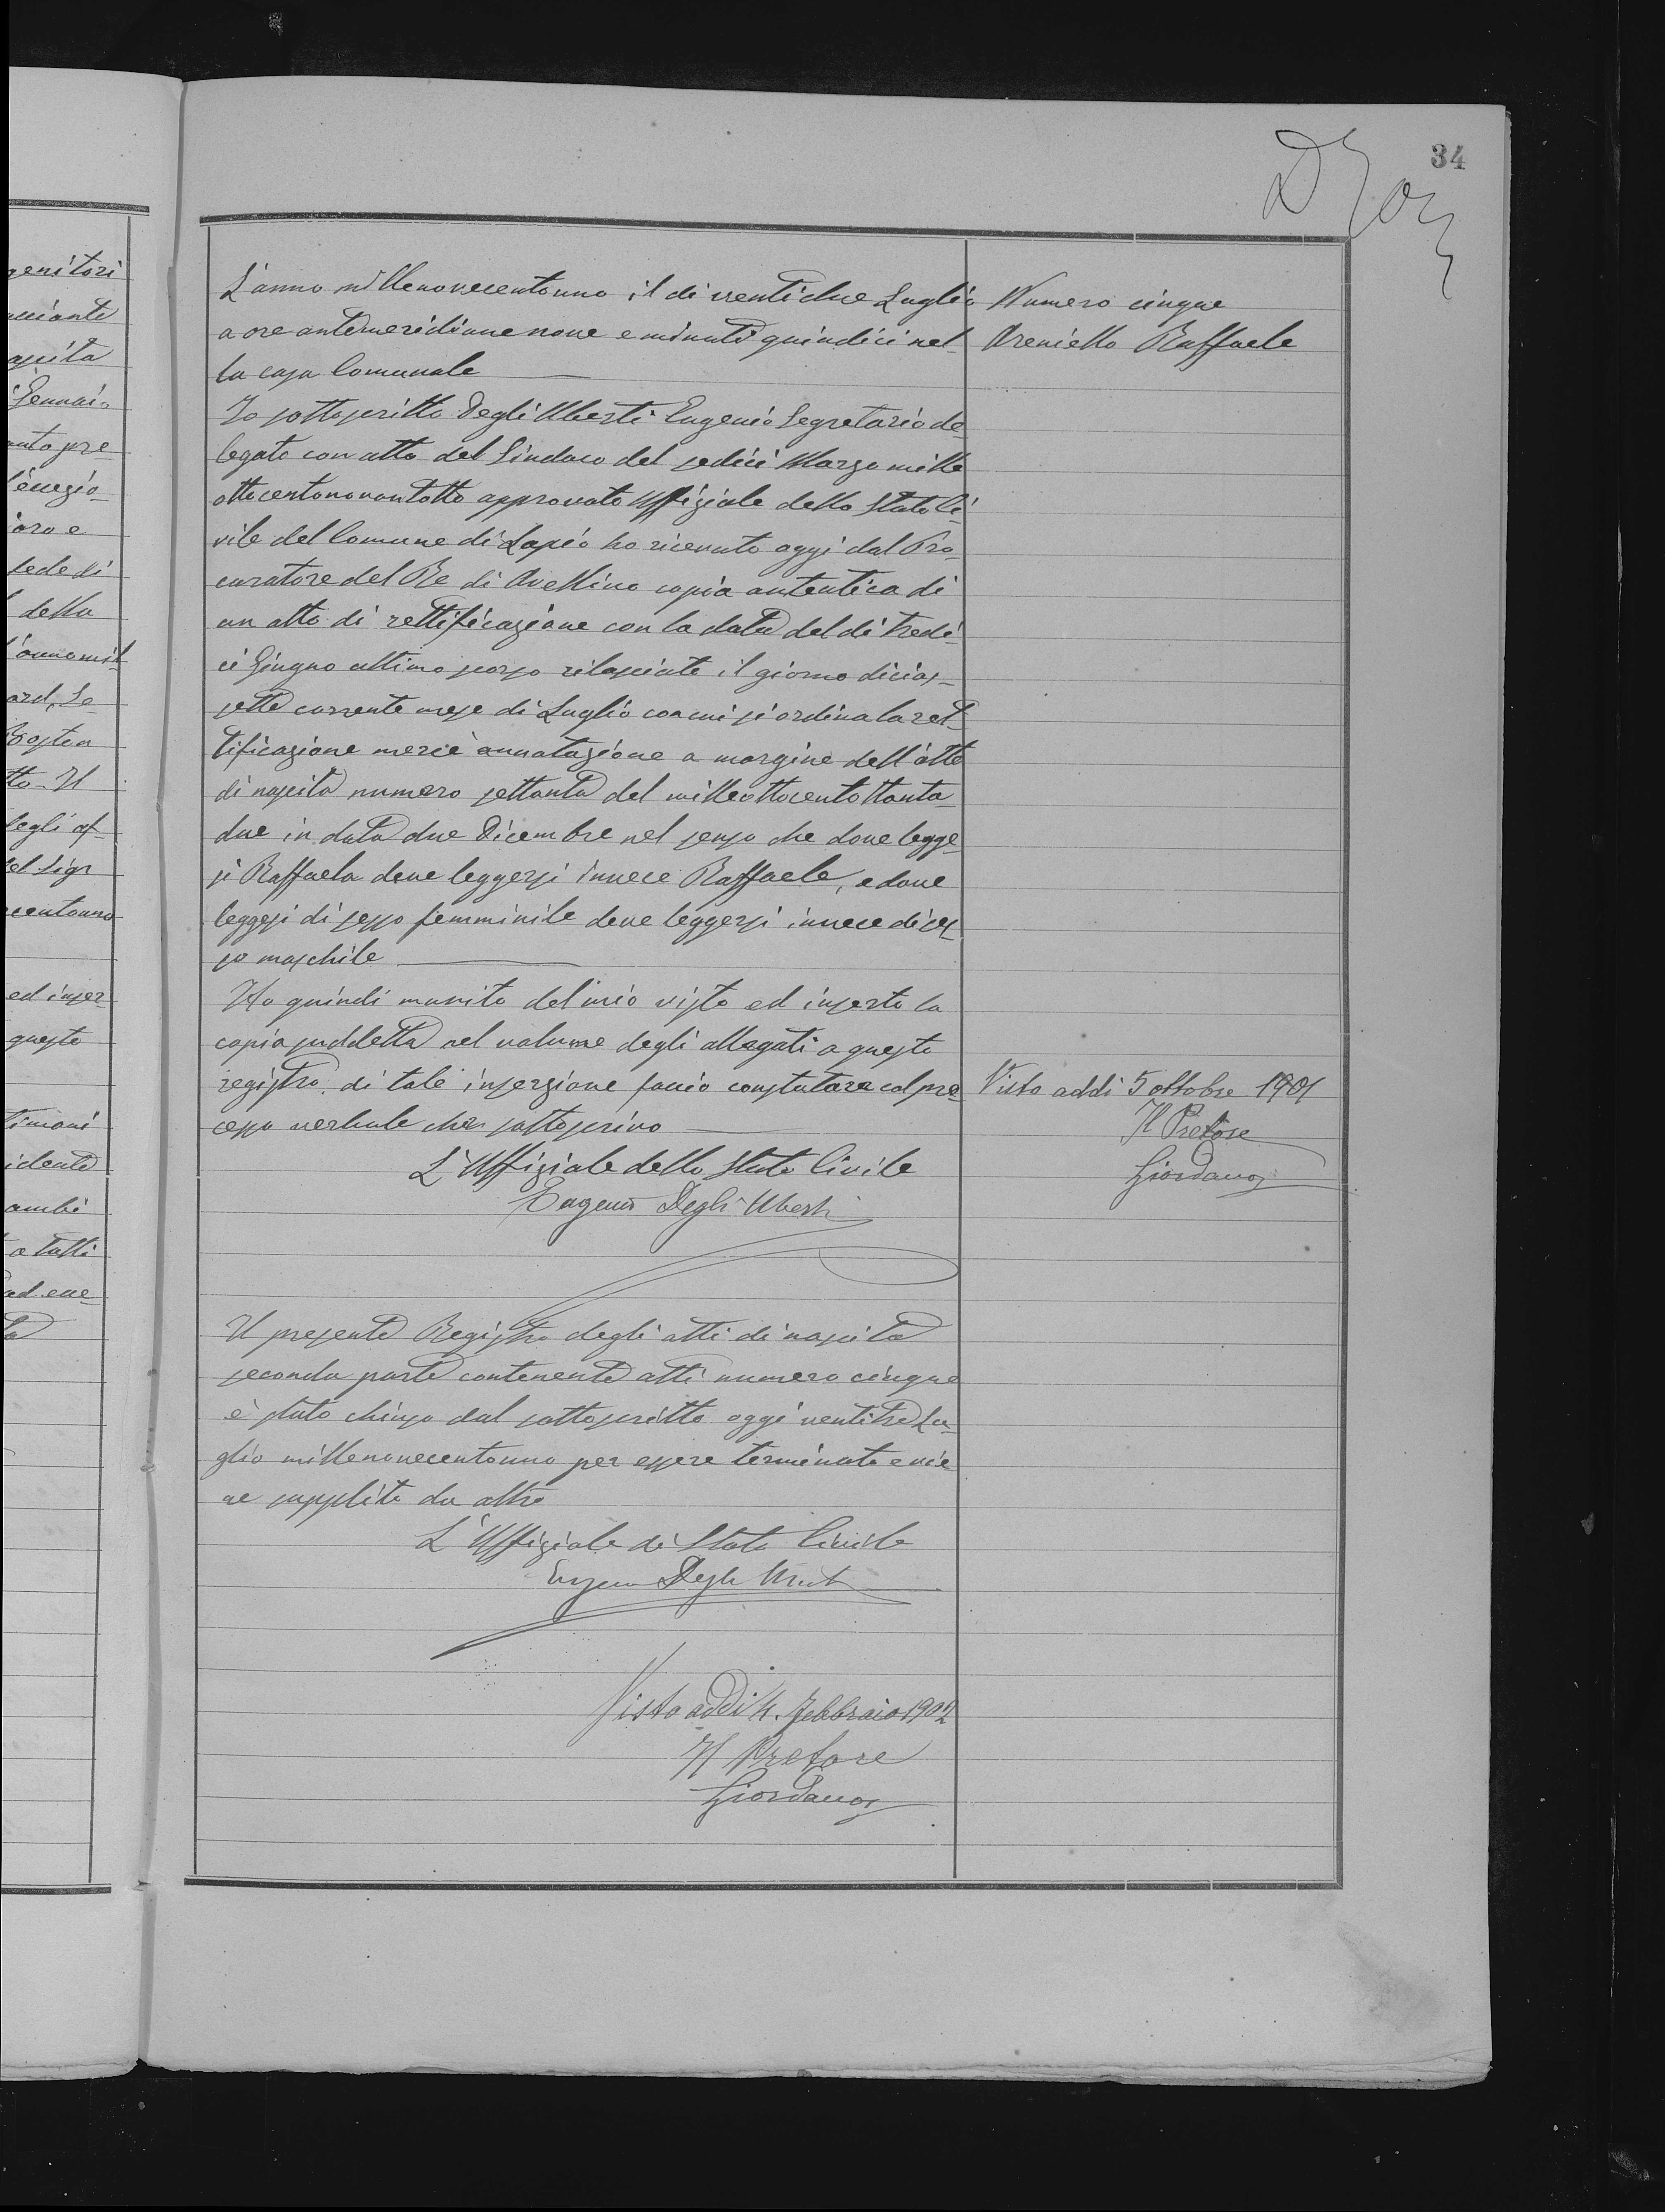 34
L'anno millenovecentouno il dì ventidue Luglio
a ore antemeridiane nove e minuti quindici nel-
la casa Comunale
Io sottoscritto Degli Uberti Eugenio Segretario de-
legato con atto del Sindaco del sedici Marzo mille
ottocentonovantotto approvato Uffiziale dello Stato Ci-
vile del Comune di Lapio ho ricevuto oggi dal Pro-
curatore del Re di Avellino copia autentica di
un atto di rettificazione con la data del dì tredi-
ci Giugno ultimo scorso rilasciato il giorno dicias-
sette corrente mese di Luglio con cui si ordina la ret-
tificazione mercè annotazione a margine dell'atto
di nascita numero settanta del milleottocentottanta-
due in data due Dicembre nel senso che dove legge-
si Raffaela deve leggersi invece Raffaele, e dove
leggesi di sesso femminile deve leggersi invece di ses-
so maschile
Ho quindi munito del mio visto ed inserto la
copia suddetta nel volume degli allegati a questo
registro, di tale inserzione faccio constatare col pro-
cesso verbale che sottoscrivo
L'Uffiziale dello Stato Civile
Eugenio Degli Uberti
Numero cinque
Areniello Raffaele
Visto addì 5 ottobre 1901
Il Pretore
Giordano
Il presente Registro degli atti di nascita
seconda parte contenente atti numero cinque
è stato chiuso dal sottoscritto oggi ventitre Lu-
glio millenovecentouno per essere terminato e vie-
ne supplito da altro
L'Uffiziale di Stato Civile
Eugenio Degli Uberti
Visto addì 4. Febbraio 1902
Il Pretore
Giordano
genitori
ascita
Gennaio
oro e
sede di
della
l'anno mil-
to - Il
degli af-
del Sigr
ed inser-
questo
timoni
ambi
a tutti